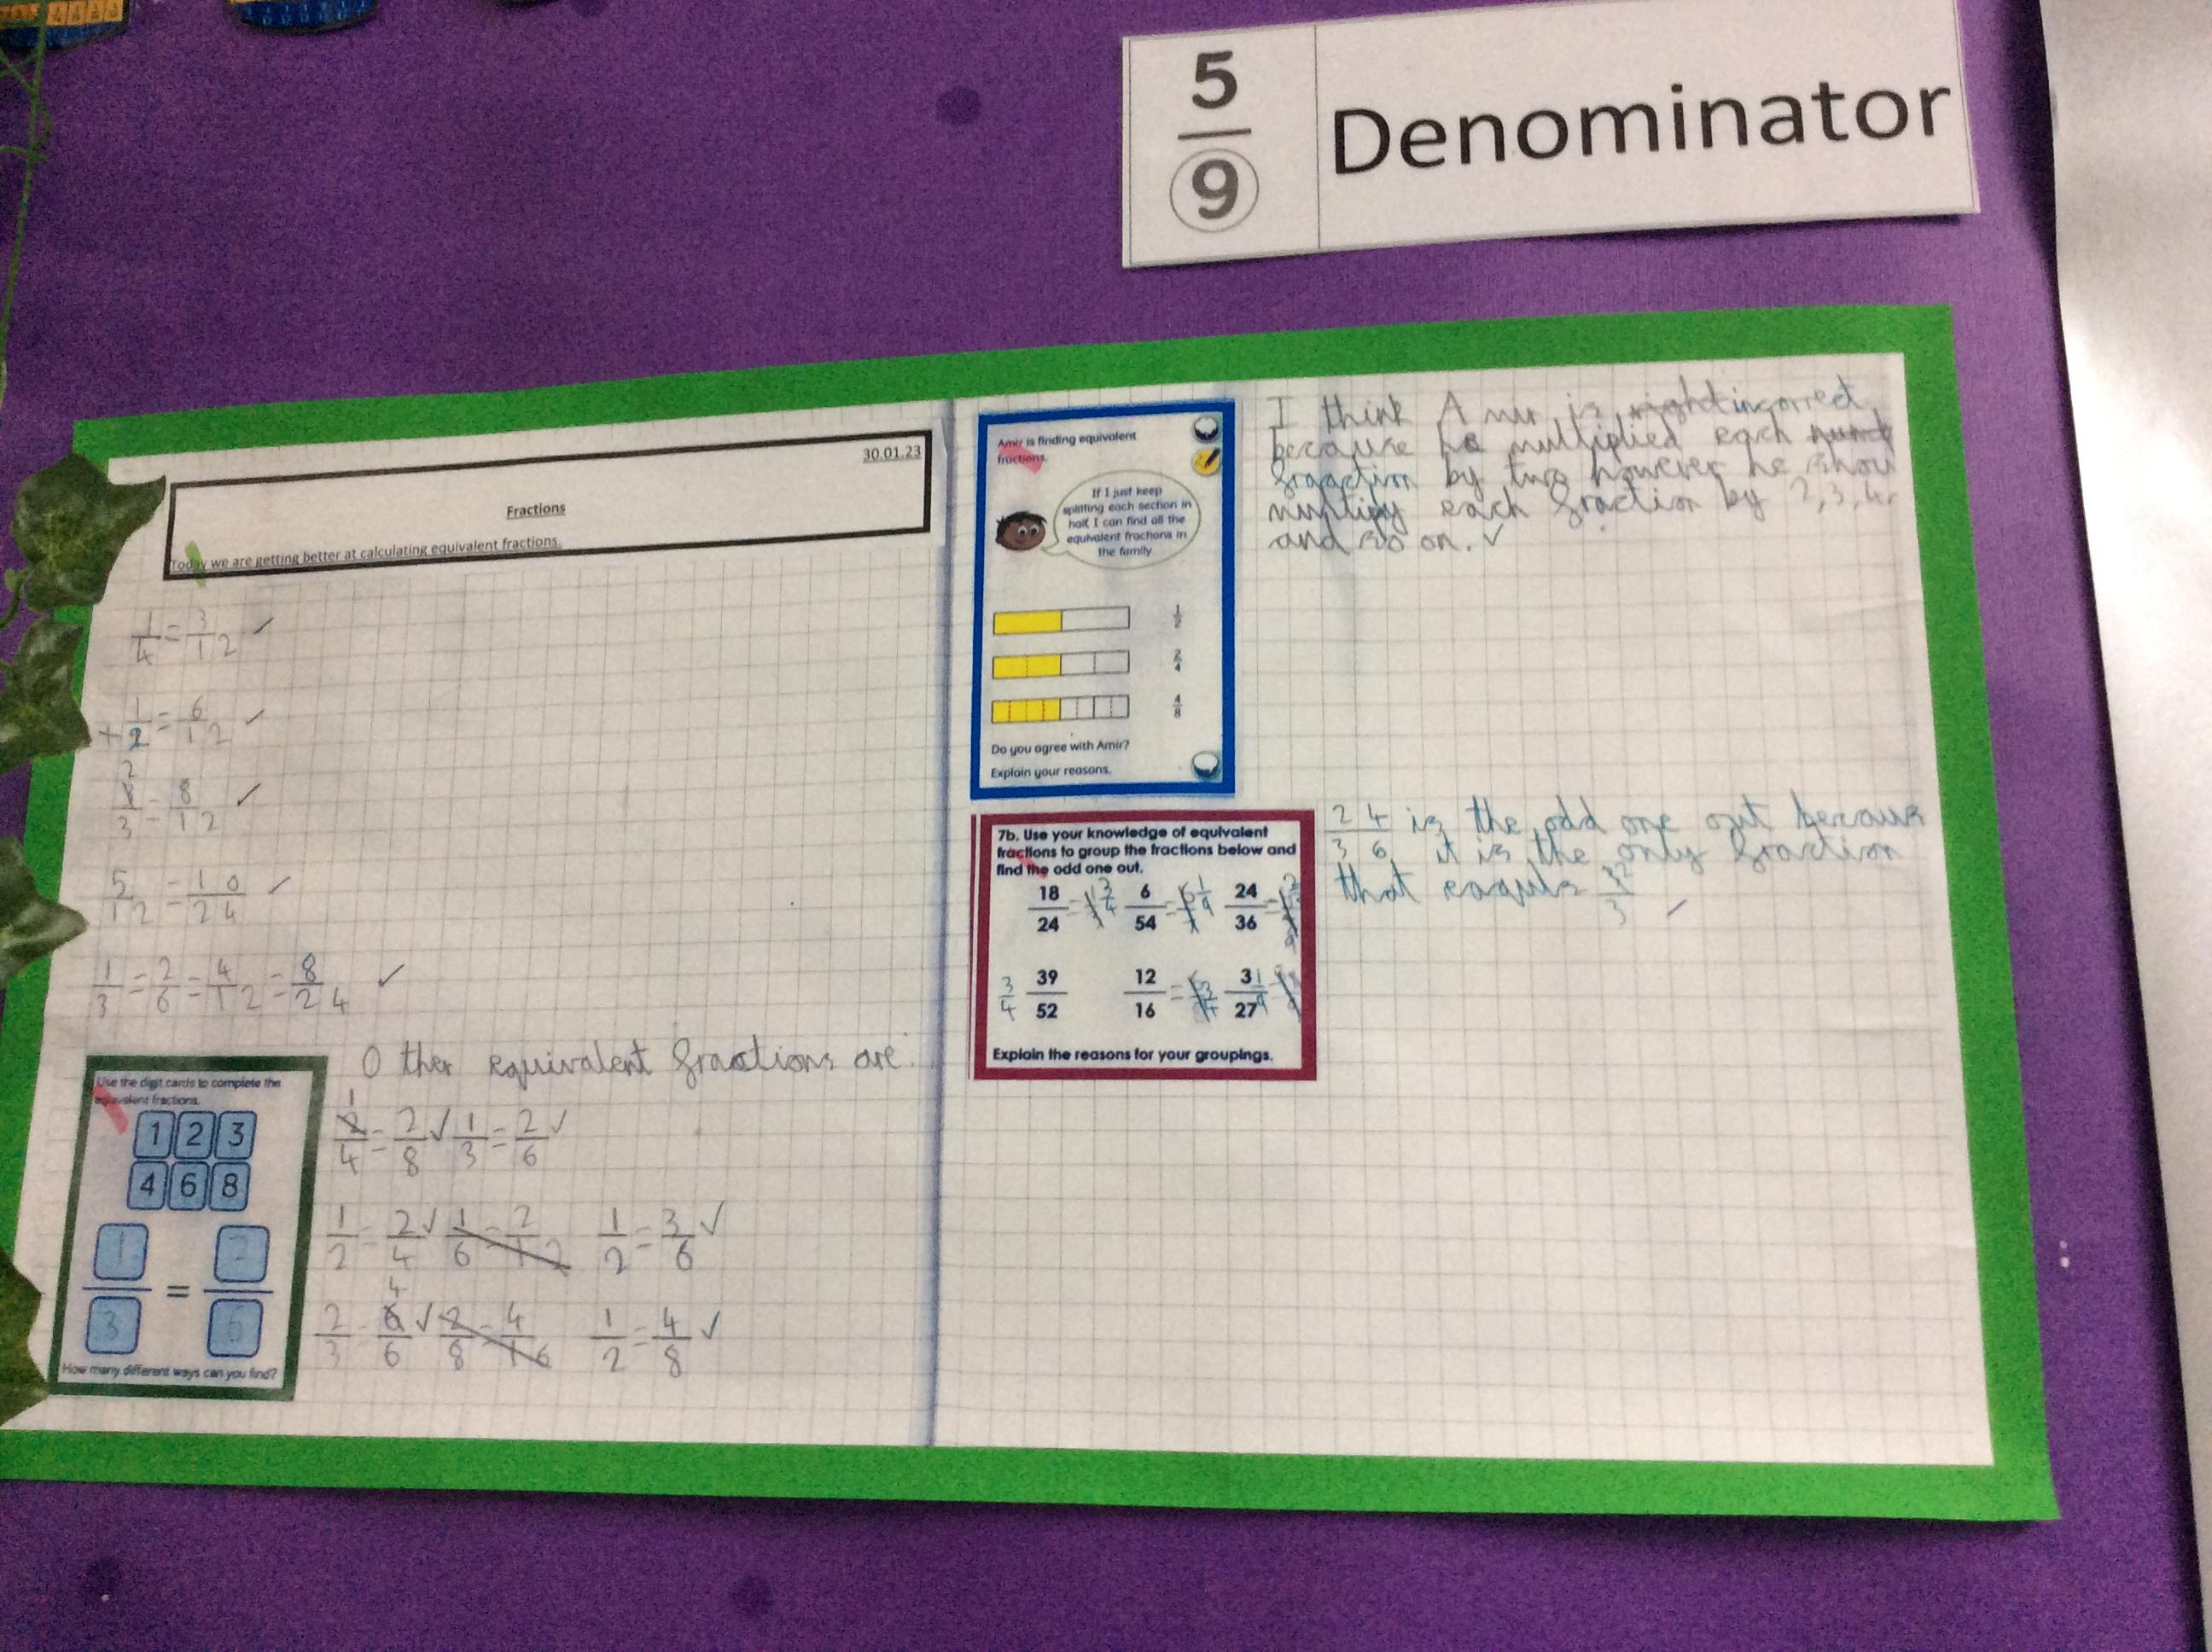 5
9
Denominator
30.01.23
Fractions
Today we are getting better at calculating equivalent fractions.
1/4 = 3/12 ✓
1/2 = 6/12 ✓
2/3 = 8/12 ✓
5/12 = 10/24 ✓
1/3 = 2/6 = 4/12 = 8/24 ✓
Use the digit cards to complete the
equivalent fractions.
1 2 3
4 6 8
1/3 = 2/6
How many different ways can you find?
Other equivalent fractions are:
1/4 = 2/8 ✓ 1/3 = 2/6 ✓
1/2 = 2/4 ✓ 1/6 = 2/12 1/2 = 3/6 ✓
2/3 = 4/6 ✓ 2/8 = 4/16 1/2 = 4/8 ✓
Amir is finding equivalent
fractions.
If I just keep
splitting each section in
half, I can find all the
equivalent fractions in
the family
1/2
2/4
4/8
Do you agree with Amir?
Explain your reasons.
I think Amir is right incorrect
because he multiplied each
fraction by two however he
multipy each fraction by 2, 3, 4,
and so on. ✓
7b. Use your knowledge of equivalent
fractions to group the fractions below and
find the odd one out.
18/24 = 3/4 6/54 = 1/9 24/36 =
3/4 39/52 12/16 = 3/4 3/27 1/9
Explain the reasons for your groupings.
2/3 4/6 is the odd one out because
it is the only fraction
that eaquls 2/3